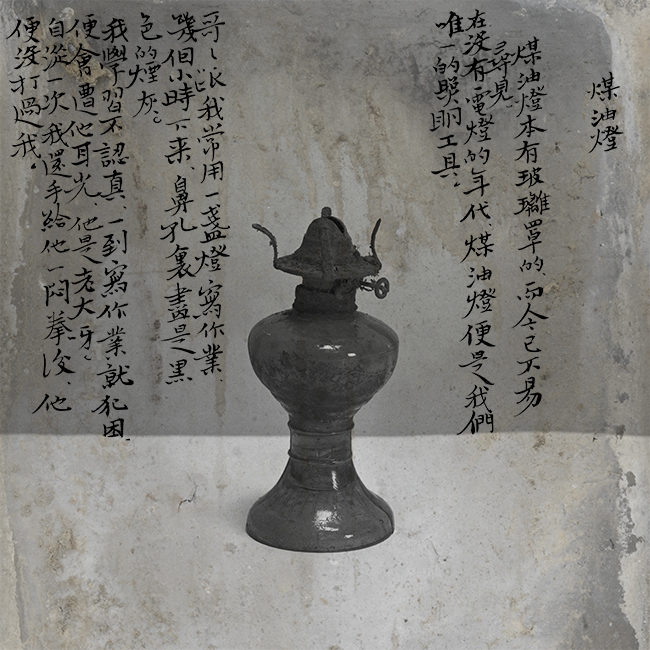 煤油燈
煤油燈本有玻璃罩的，而今已不易
尋見。
在没有電燈的年代，煤油燈便是我們
唯一的照明工具。
哥〻跟我常用一盞燈寫作業，
幾個小時下来，鼻孔裏盡是黑
色的煙灰。
我學習不認真，一到寫作業就犯困
便會遭他耳光，他是老大牙。
自從一次我還手給他一悶拳後，他
便没打過我。